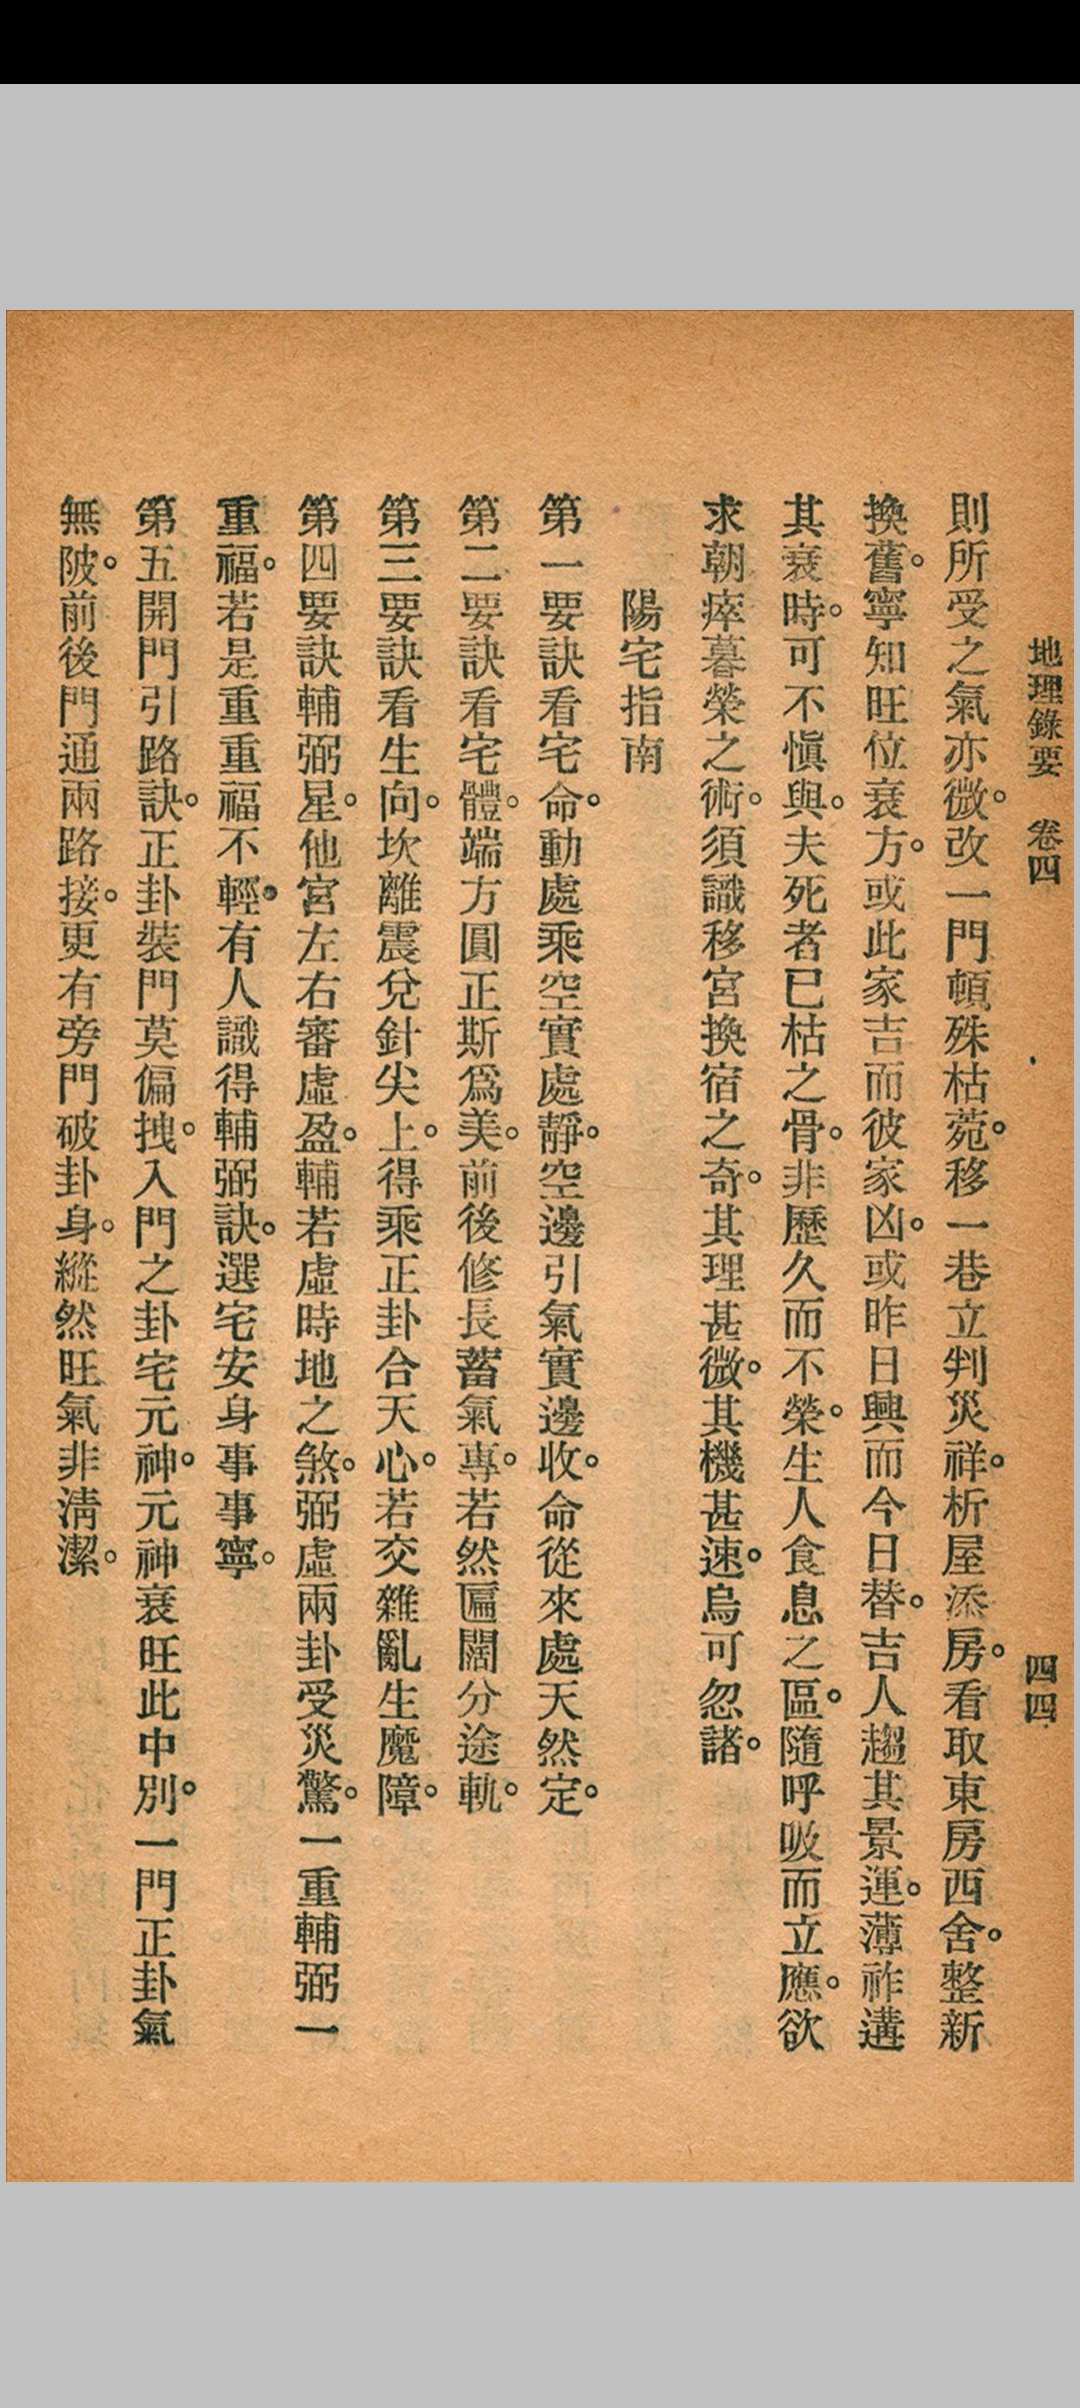 地理錄要　卷四　四四
則所受之氣亦微。改一門頓殊枯菀。移一巷立判災祥。析屋添房。看取東房西舍。整新
換舊。寧知旺位衰方。或此家吉而彼家凶。或昨日興而今日替。吉人趨其景運。薄祚遘
其衰時。可不愼與。夫死者已枯之骨。非歷久而不榮。生人食息之區。隨呼吸而立應。欲
求朝瘁暮榮之術。須識移宮換宿之奇。其理甚微。其機甚速。烏可忽諸。
陽宅指南
第一要訣看宅命。動處乘空實處靜。空邊引氣實邊收。命從來處天然定。
第二要訣看宅體。端方圓正斯爲美。前後修長蓄氣專。若然匾闊分途軌。
第三要訣看生向。坎離震兌針尖上。得乘正卦合天心。若交雜亂生魔障。
第四要訣輔弼星。他宮左右審虛盈。輔若虛時地之煞。弼虛兩卦受災驚。一重輔弼一
重福。若是重重福不輕。有人識得輔弼訣。選宅安身事事寧。
第五開門引路訣。正卦裝門莫偏拽。入門之卦宅元神。元神衰旺此中別。一門正卦氣
無陂。前後門通兩路接。更有旁門破卦身。縱然旺氣非淸潔。